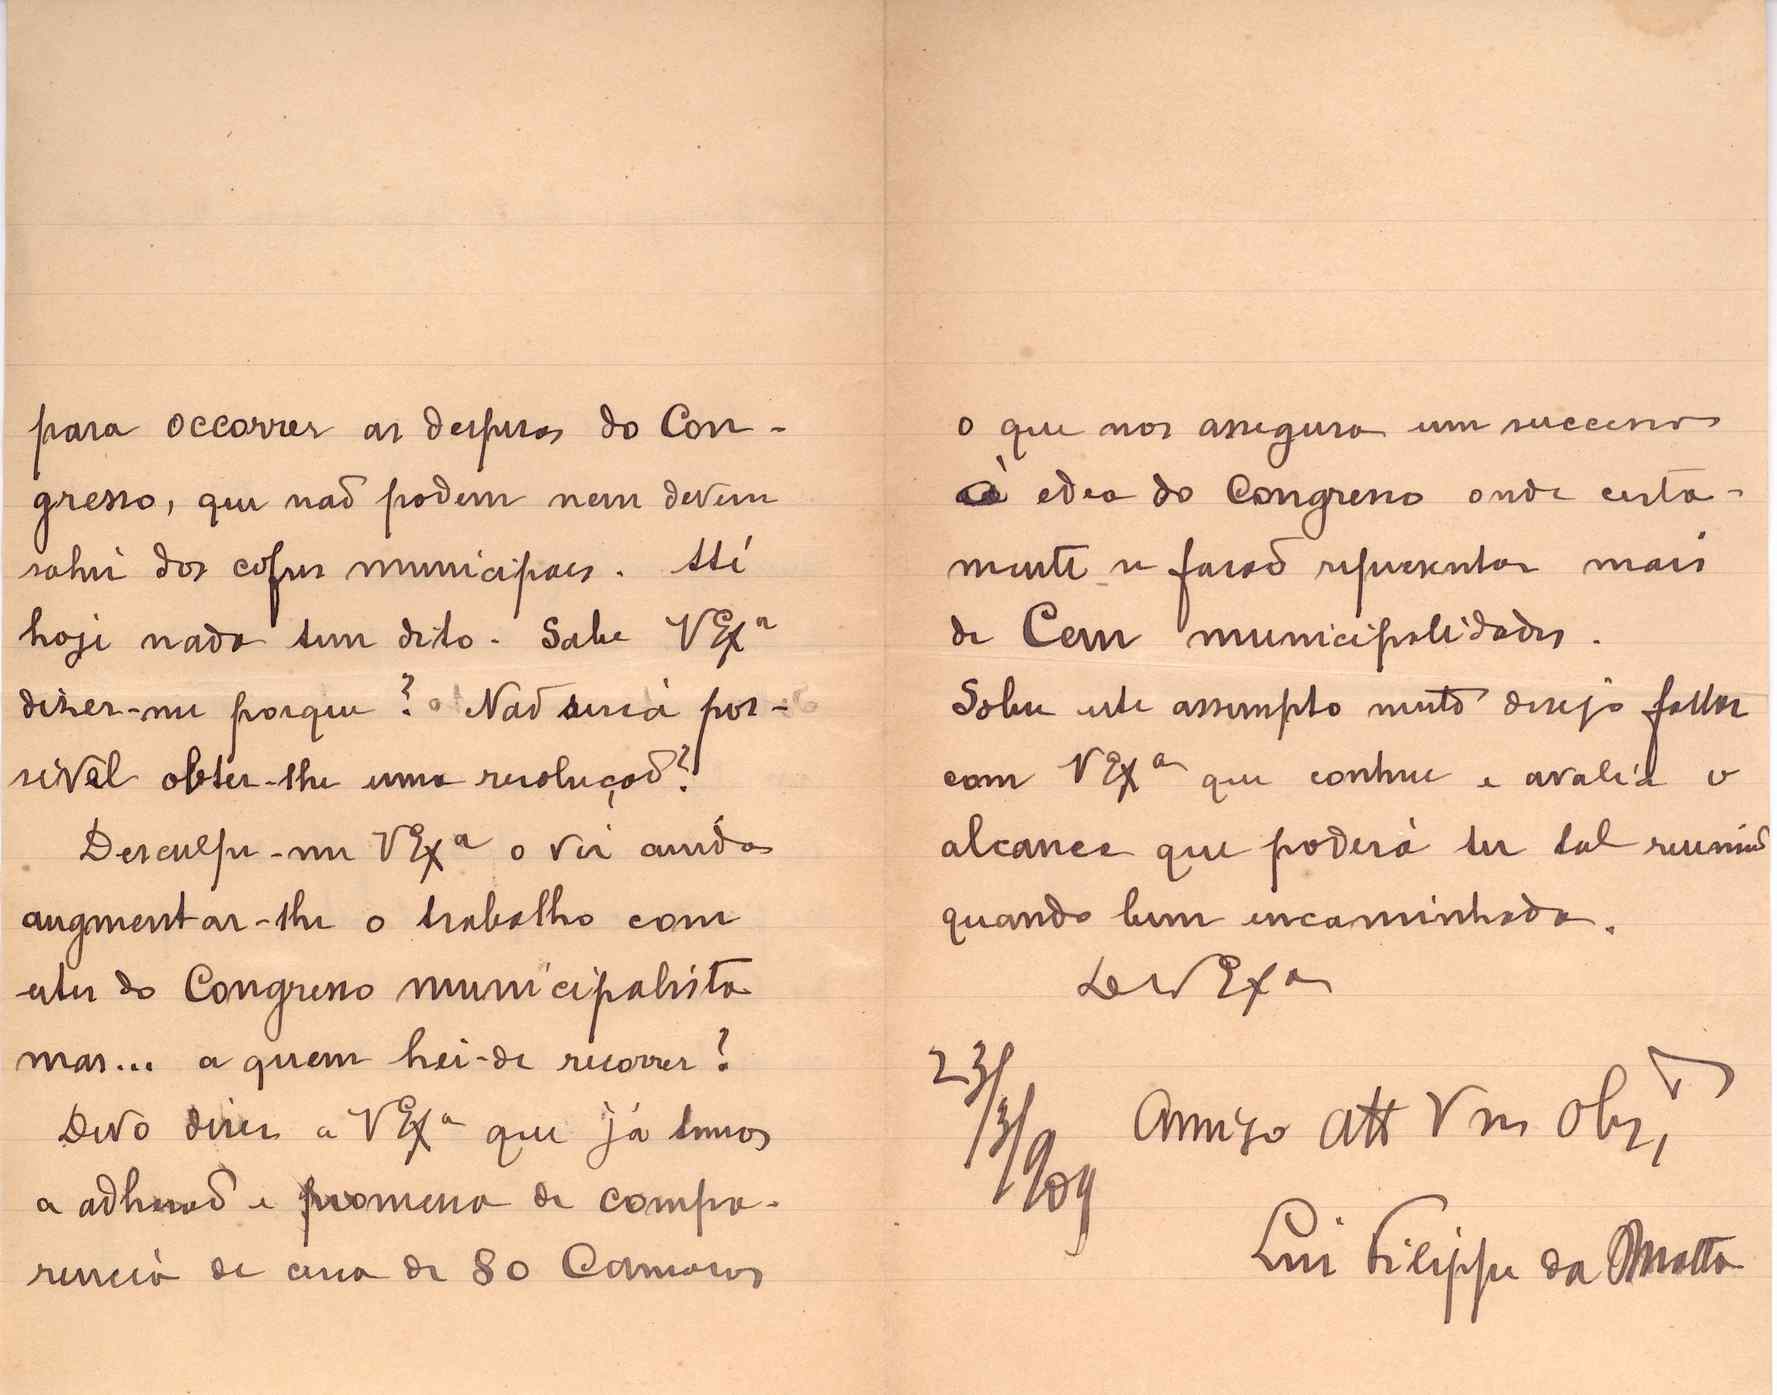 para occorrer as despesas do Con-
gresso, que naõ podem nem devem
sahir dos cofres municipaes. Até
hoje nada tem dito. Sabe V Exª
dizer-me porque? Naõ seria pos-
sivel obter-lhe uma resoluçaõ?
Desculpe-me V Exª o vir ainda
augmentar-lhe o trabalho com
este do Congresso municipalista
mas... a quem hei-de recorrer?
Devo dizer a V Exª que já temos
a adhesaõ e promessa de compa-
rencia de cerca de 80 Camaras
o que nos assegura um successo
á edea do Congresso onde certa-
mente se faraõ representar mais
de Cem municipalidades.
Sobre este assumpto mutõ desejo fallar
com V Exª que conhece e avalia o
alcance que poderá ter tal reuniaõ
quando bem encaminhada.
De V Exª
23/3/909
Amigo Att Vor Obrº
Luis Filippe da Matta